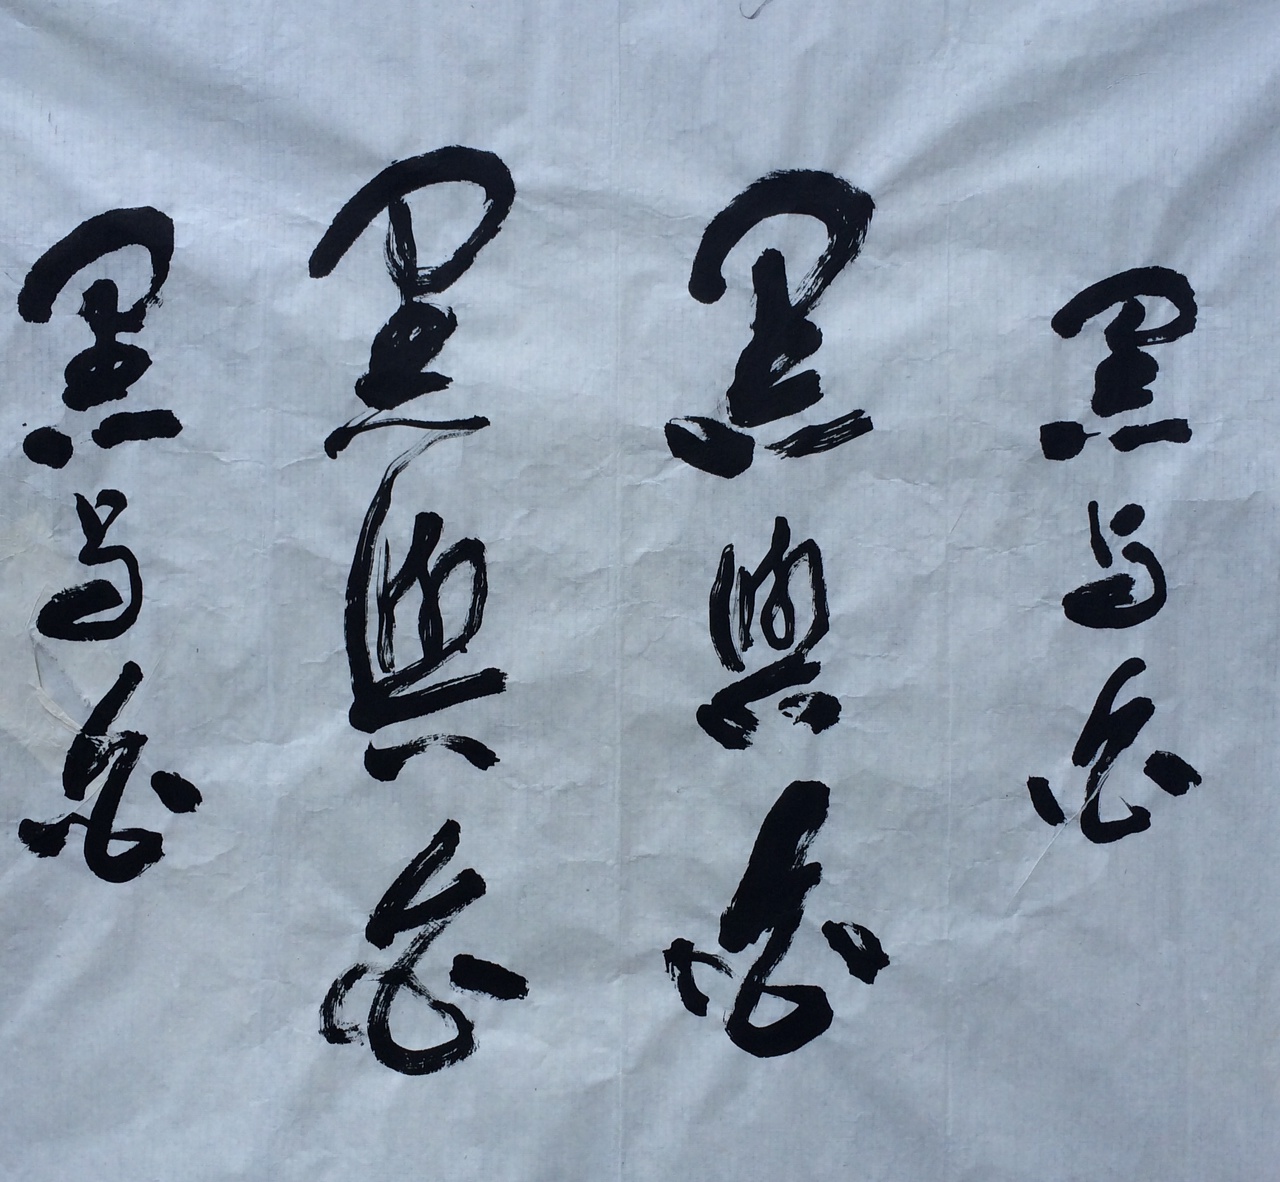 黑与白
黑與白
黑與白
黑与白